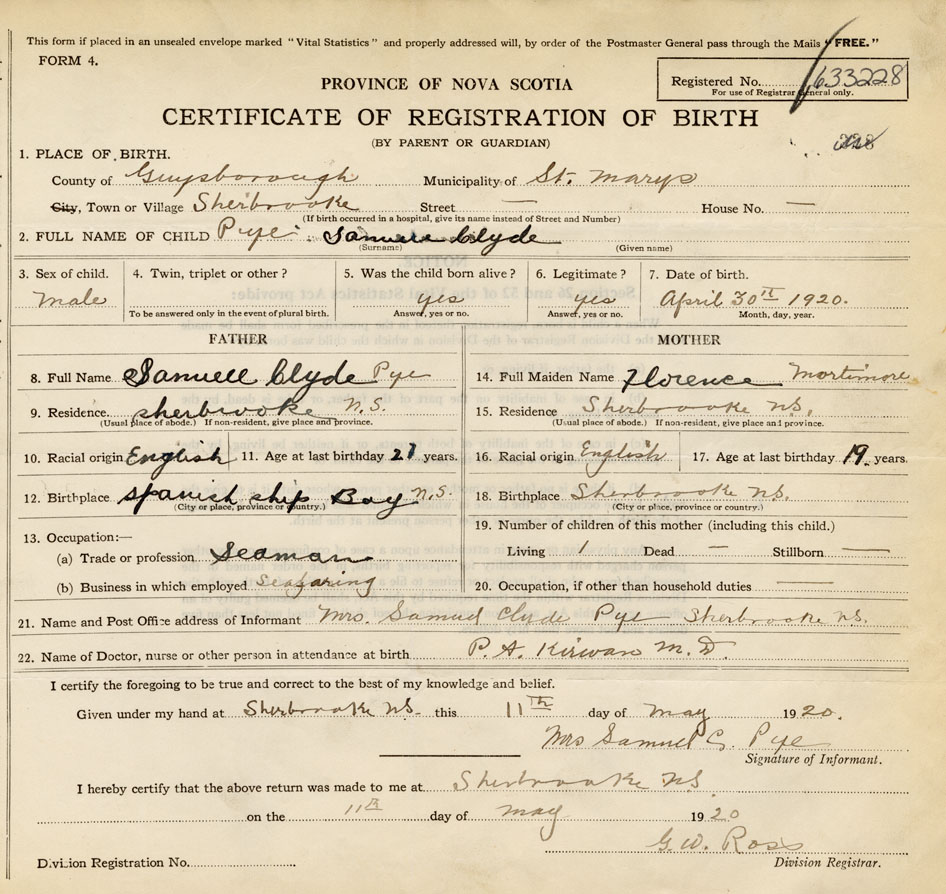 This form if placed in an unsealed envelope marked "Vital Statistics" and properly addressed will, by order of the Postmaster General pass through the Mails "FREE."
FORM 4.
Registered No. 633228
For use of Registrar General only.
PROVINCE OF NOVA SCOTIA
CERTIFICATE OF REGISTRATION OF BIRTH
(BY PARENT OR GUARDIAN)
1. PLACE OF BIRTH.
County of Guysborough Municipality of St. Marys
City, Town or Village Sherbrooke Street — House No. —
(If birth occurred in a hospital, give its name instead of Street and Number)
2. FULL NAME OF CHILD Pye Samuell Clyde
(Surname) (Given name)
3. Sex of child. 4. Twin, triplet or other? 5. Was the child born alive? 6. Legitimate? 7. Date of birth.
Male yes yes April 30th 1920.
To be answered only in the event of plural birth. Answer, yes or no. Answer, yes or no. Month, day, year.
FATHER
8. Full Name Samuell Clyde Pye
9. Residence. Sherbrooke N.S.
(Usual place of abode.) If non-resident, give place and province.
10. Racial origin English 11. Age at last birthday 21 years.
12. Birthplace Spanish ship Bay N.S.
(City or place, province or country.)
13. Occupation:—
(a) Trade or profession Seaman
(b) Business in which employed Seafaring
MOTHER
14. Full Maiden Name Florence Mortimore
15. Residence Sherbrooke N.S.
(Usual place of abode.) If non-resident, give place and province.
16. Racial origin English 17. Age at last birthday 19 years.
18. Birthplace Sherbrooke N.S.
(City or place, province or country.)
19. Number of children of this mother (including this child.)
Living 1 Dead — Stillborn —
20. Occupation, if other than household duties —
21. Name and Post Office address of Informant Mrs. Samuel Clyde Pye Sherbrooke N.S.
22. Name of Doctor, nurse or other person in attendance at birth P. A. Kirwan M.D.
I certify the foregoing to be true and correct to the best of my knowledge and belief.
Given under my hand at Sherbrooke N.S. this 11th day of May 1920.
Mrs Samuel C. Pye
Signature of Informant.
I hereby certify that the above return was made to me at Sherbrooke N.S.
on the 11th day of May 1920
G. W. Ross
Division Registration No. Division Registrar.